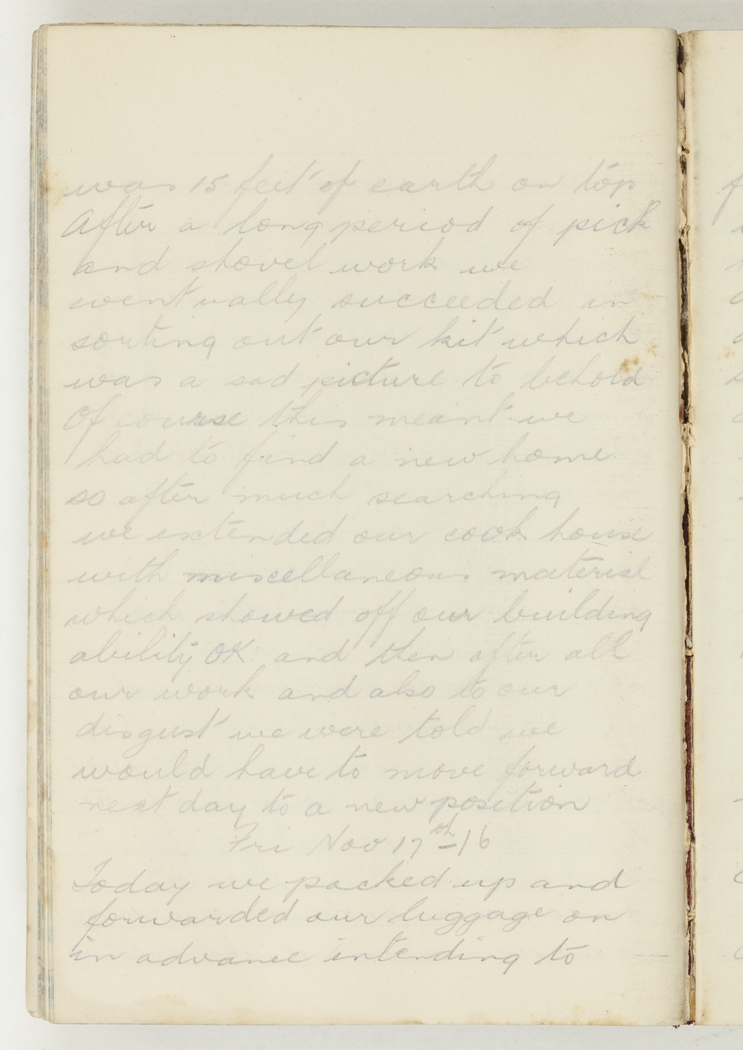 was 15 feet of earth on top
After a long period of pick
and shovel work we
eventually succeeded in
sorting out our kit which
was a sad picture to behold
Of course this meant we
had to find a new home
so after much searching
we extended our cook house
with miscellaneous material
which showed off our building
ability OK and then after all
our work and also to our
disgust we were told we
would have to move forward
next day to a new position
Fri Nov 17th-16
Today we packed up and
forwarded our luggage on
in advance intending to